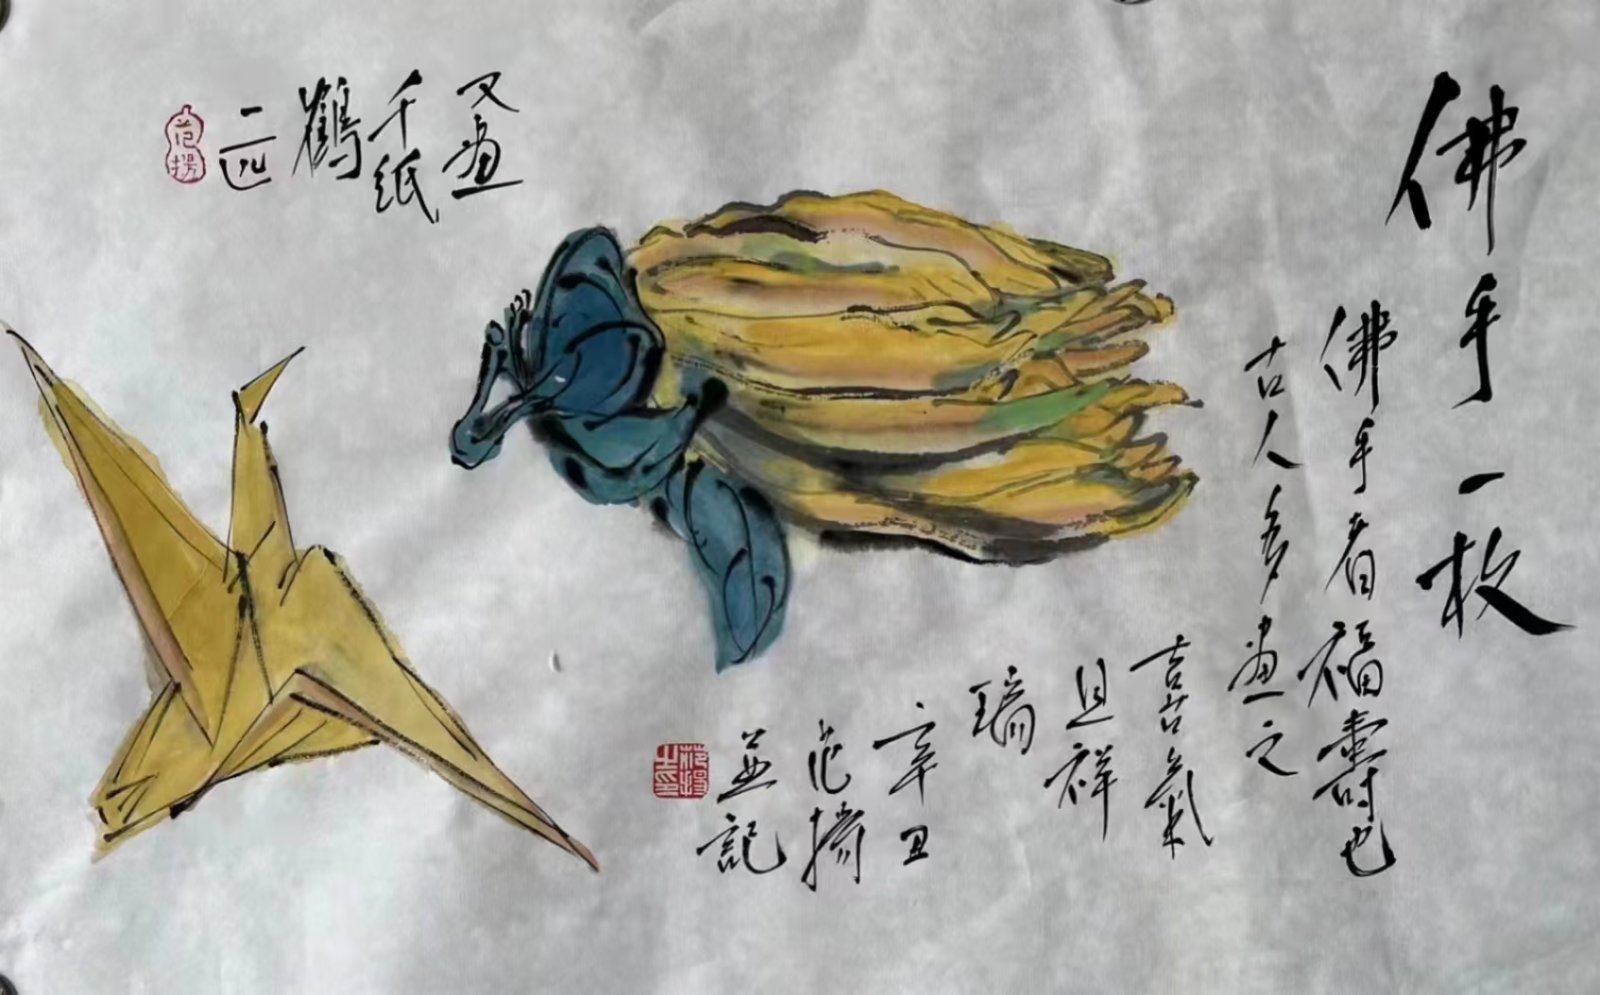 佛手一枚
佛手者福壽也
古人多畫之
喜氣
且祥
瑞
辛丑
范揚
並記
范揚之印
又畫
千紙
鶴
范揚